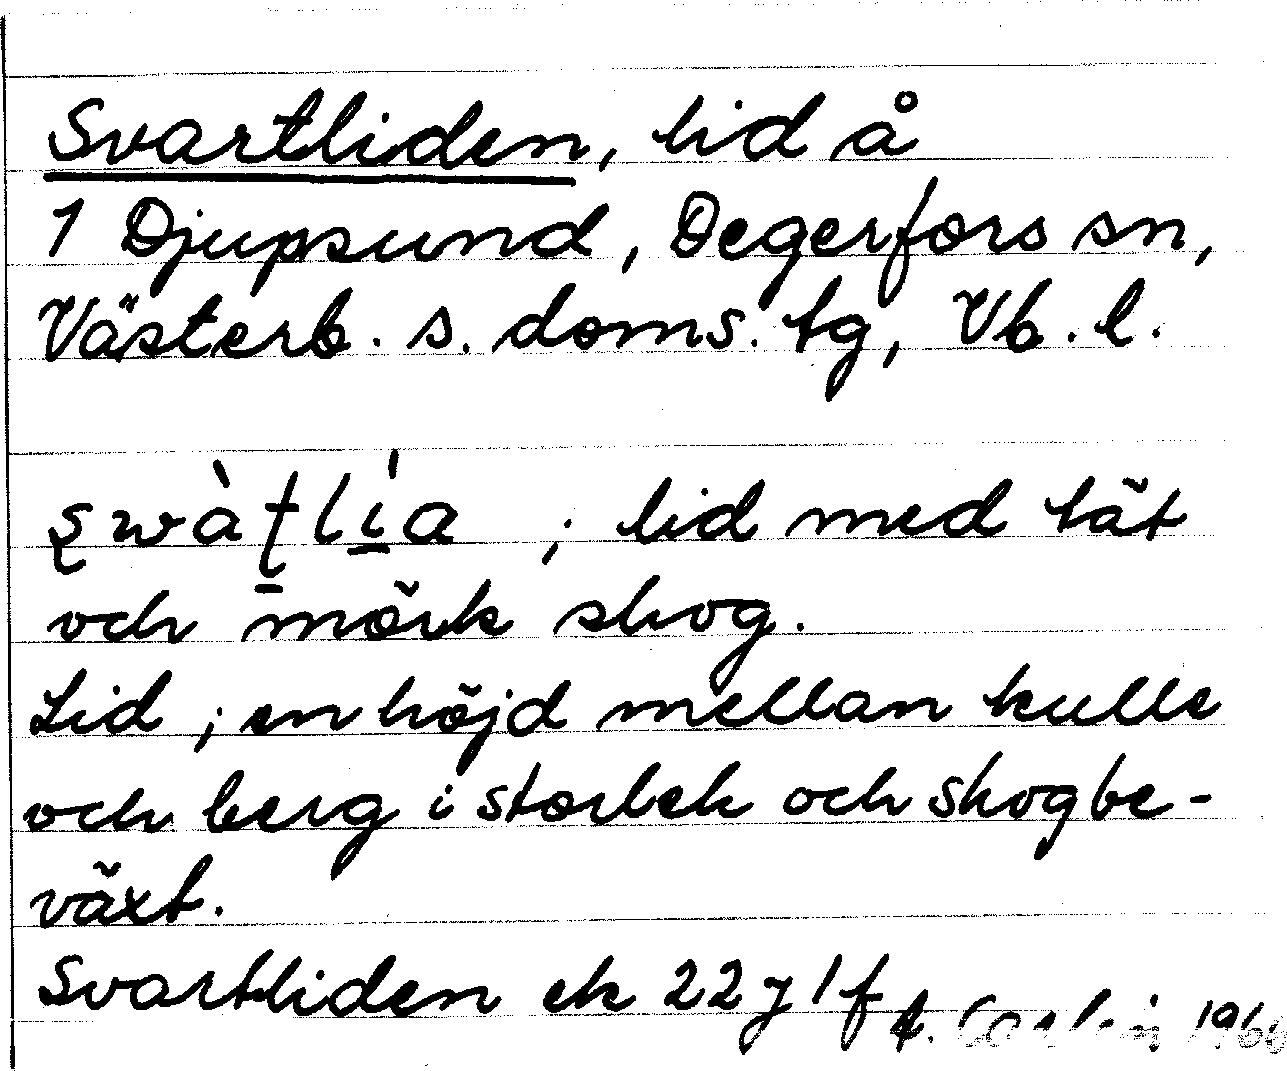 Svartliden, lid å
1 Djupsund, Degerfors sn,
Västerb. s. doms. tg, Vb. l.
ʂwàʈlía ; lid med tät
och mörk skog.
Lid ; en höjd mellan kulle
och berg i storlek och skogbe-
växt.
Svartliden ek 22 J 1 f